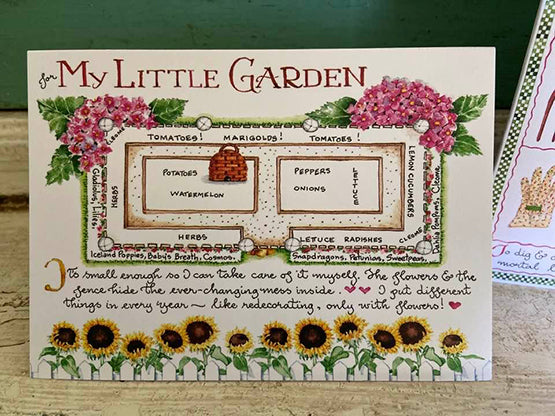 for My Little Garden
CLEOME
TOMATOES! MARIGOLDS! TOMATOES!
HERBS
Gladiolas, Lilies,
POTATOES
WATERMELON
PEPPERS
ONIONS
LETTUCE
LEMON CUCUMBERS
Dahlia Pompoms, Cleome,
HERBS
LETUCE RADISHES
CLEOME
Iceland Poppies, Baby's Breath, Cosmos,
Snapdragons, Petunias, Sweetpeas,
It's small enough so I can take care of it myself. The flowers & the
fence hide the ever-changing mess inside. I put different
things in every year ~ like redecorating, only with flowers!
To dig &